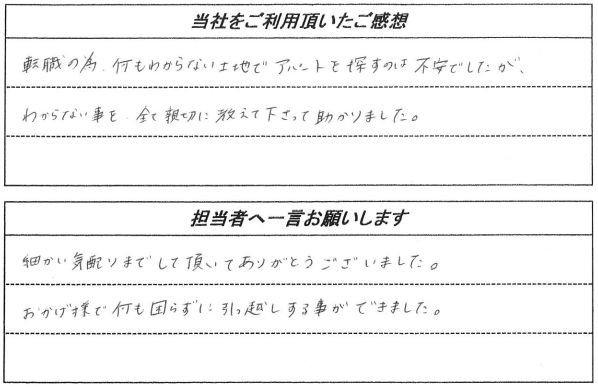 当社をご利用頂いたご感想
転職の為、何もわからない土地でアパートを探すのは不安でしたが、
わからない事を、全て親切に教えて下さって助かりました。
担当者へ一言お願いします
細かい気配りまでして頂いてありがとうございました。
おかげ様で何も困らずに引っ越しする事ができました。